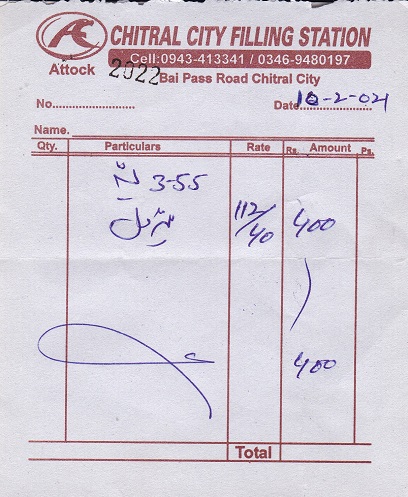 CHITRAL CITY FILLING STATION
Cell:0943-413341 / 0346-9480197
Attock 2022 Bai Pass Road Chitral City
No. Date 10-2-021
Name.
Qty. Particulars Rate Rs. Amount Ps.
3-55
پٹرول 112/40 400
400
Total